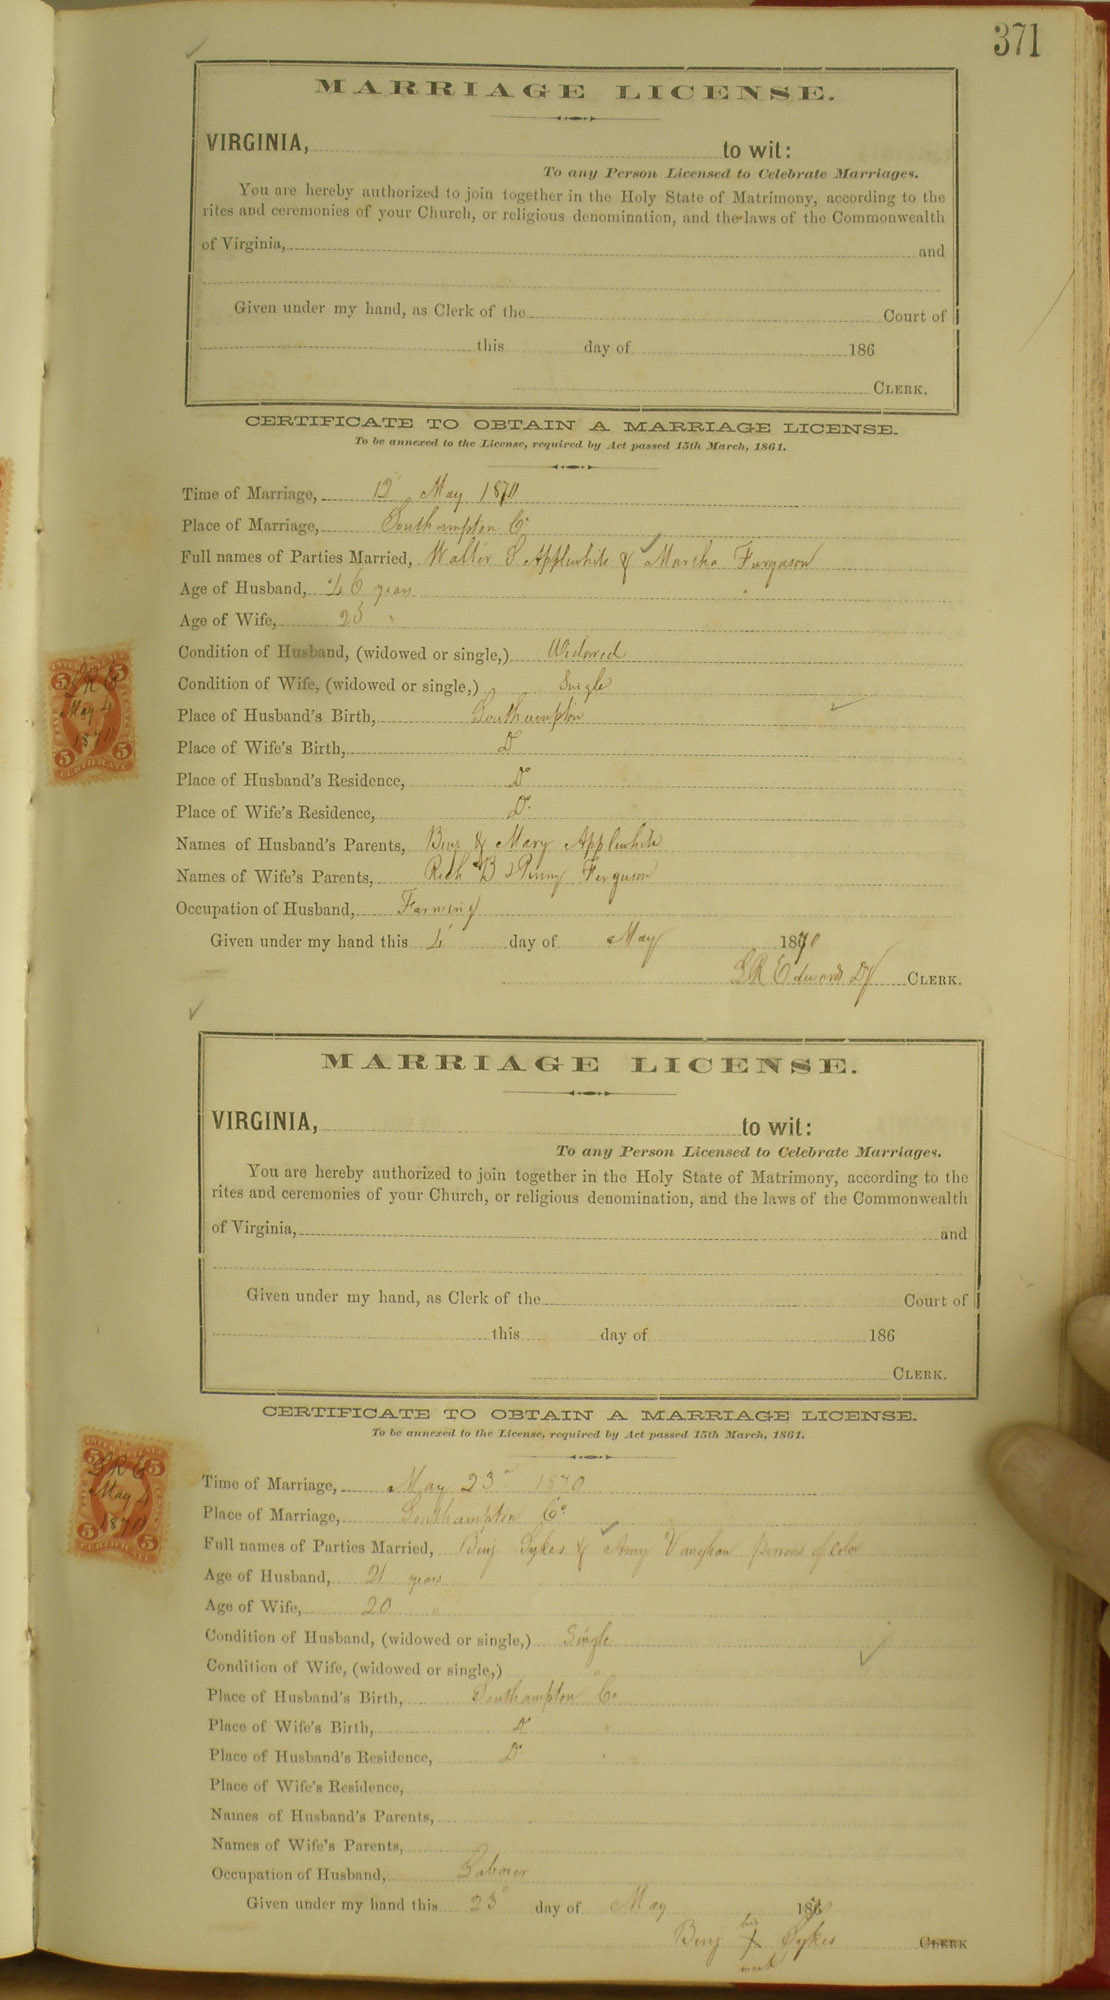 371
MARRIAGE LICENSE.
VIRGINIA, to wit:
To any Person Licensed to Celebrate Marriages.
You are hereby authorized to join together in the Holy State of Matrimony, according to the
rites and ceremonies of your Church, or religious denomination, and the laws of the Commonwealth
of Virginia, and
Given under my hand, as Clerk of the Court of
this day of 186
CLERK.
CERTIFICATE TO OBTAIN A MARRIAGE LICENSE.
To be annexed to the License, required by Act passed 15th March, 1861.
Time of Marriage, 12 May 1870
Place of Marriage, Southampton Co
Full names of Parties Married, Walter S Applewhite & Marsha Ferguson
Age of Husband, 46 years
Age of Wife, 25 "
Condition of Husband, (widowed or single,) Widowed
Condition of Wife, (widowed or single,) Single
Place of Husband's Birth, Southampton
Place of Wife's Birth, Do
Place of Husband's Residence, Do
Place of Wife's Residence, Do
Names of Husband's Parents, Benj & Mary Applewhite
Names of Wife's Parents, Rich B & Ferguson
Occupation of Husband, Farming
Given under my hand this 4 day of May 1870
LR Edwards Dy CLERK.
5 5
LR E
May 4
1870
5 5
CERTIFICATE
MARRIAGE LICENSE.
VIRGINIA, to wit:
To any Person Licensed to Celebrate Marriages.
You are hereby authorized to join together in the Holy State of Matrimony, according to the
rites and ceremonies of your Church, or religious denomination, and the laws of the Commonwealth
of Virginia, and
Given under my hand, as Clerk of the Court of
this day of 186
CLERK.
CERTIFICATE TO OBTAIN A MARRIAGE LICENSE.
To be annexed to the License, required by Act passed 15th March, 1861.
Time of Marriage, May 23d 1870
Place of Marriage, Southampton Co
Full names of Parties Married, Benj Sykes & Amy Vaughan persons of color
Age of Husband, 21 years
Age of Wife, 20 "
Condition of Husband, (widowed or single,) Single
Condition of Wife, (widowed or single,) "
Place of Husband's Birth, Southampton Co
Place of Wife's Birth, Do "
Place of Husband's Residence, Do "
Place of Wife's Residence,
Names of Husband's Parents,
Names of Wife's Parents,
Occupation of Husband, Laborer
Given under my hand this 23d day of May 186
his
Benj X Sykes CLERK
mark
5 5
LR E
May 4
1870
5 5
CERTIFICATE